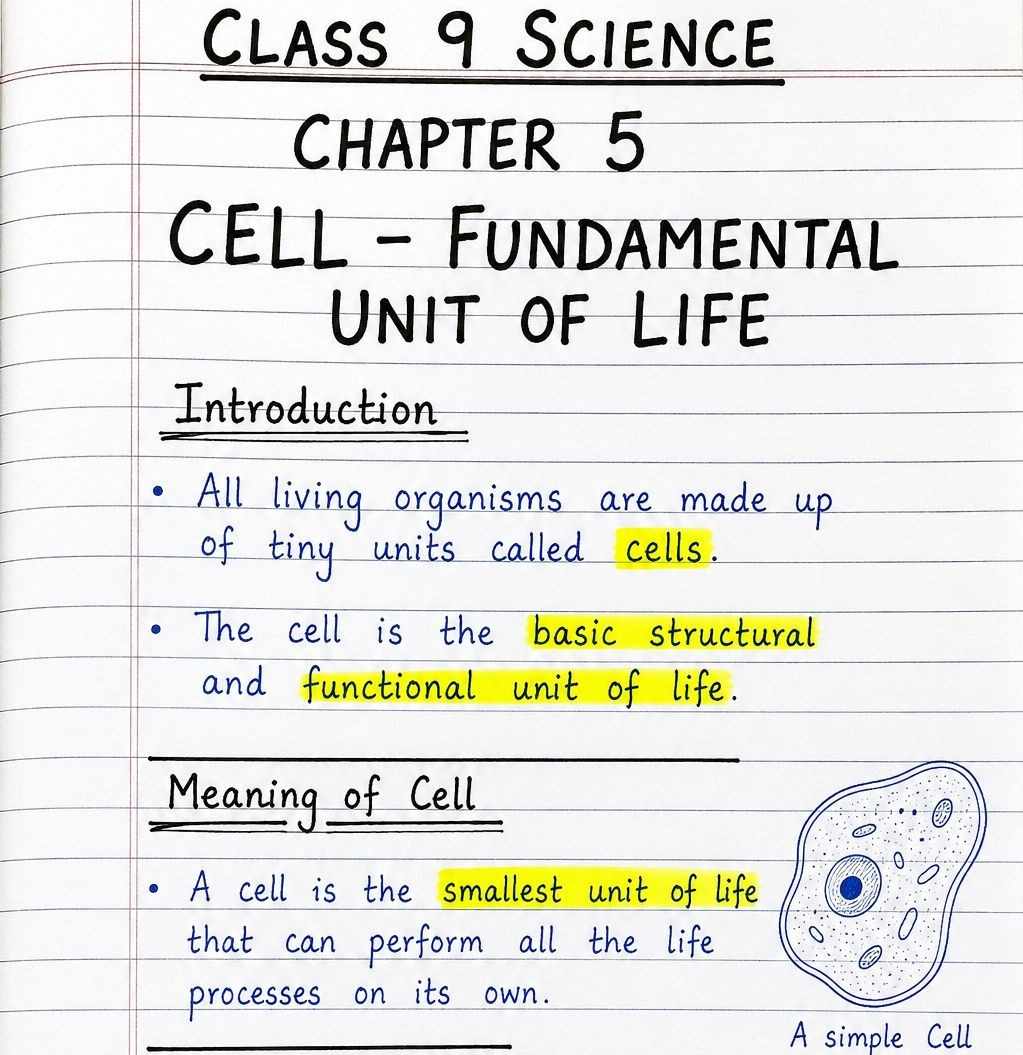 CLASS 9 SCIENCE
CHAPTER 5
CELL – FUNDAMENTAL
UNIT OF LIFE
Introduction
• All living organisms are made up
of tiny units called cells.
• The cell is the basic structural
and functional unit of life.
Meaning of Cell
• A cell is the smallest unit of life
that can perform all the life
processes on its own.
A simple Cell